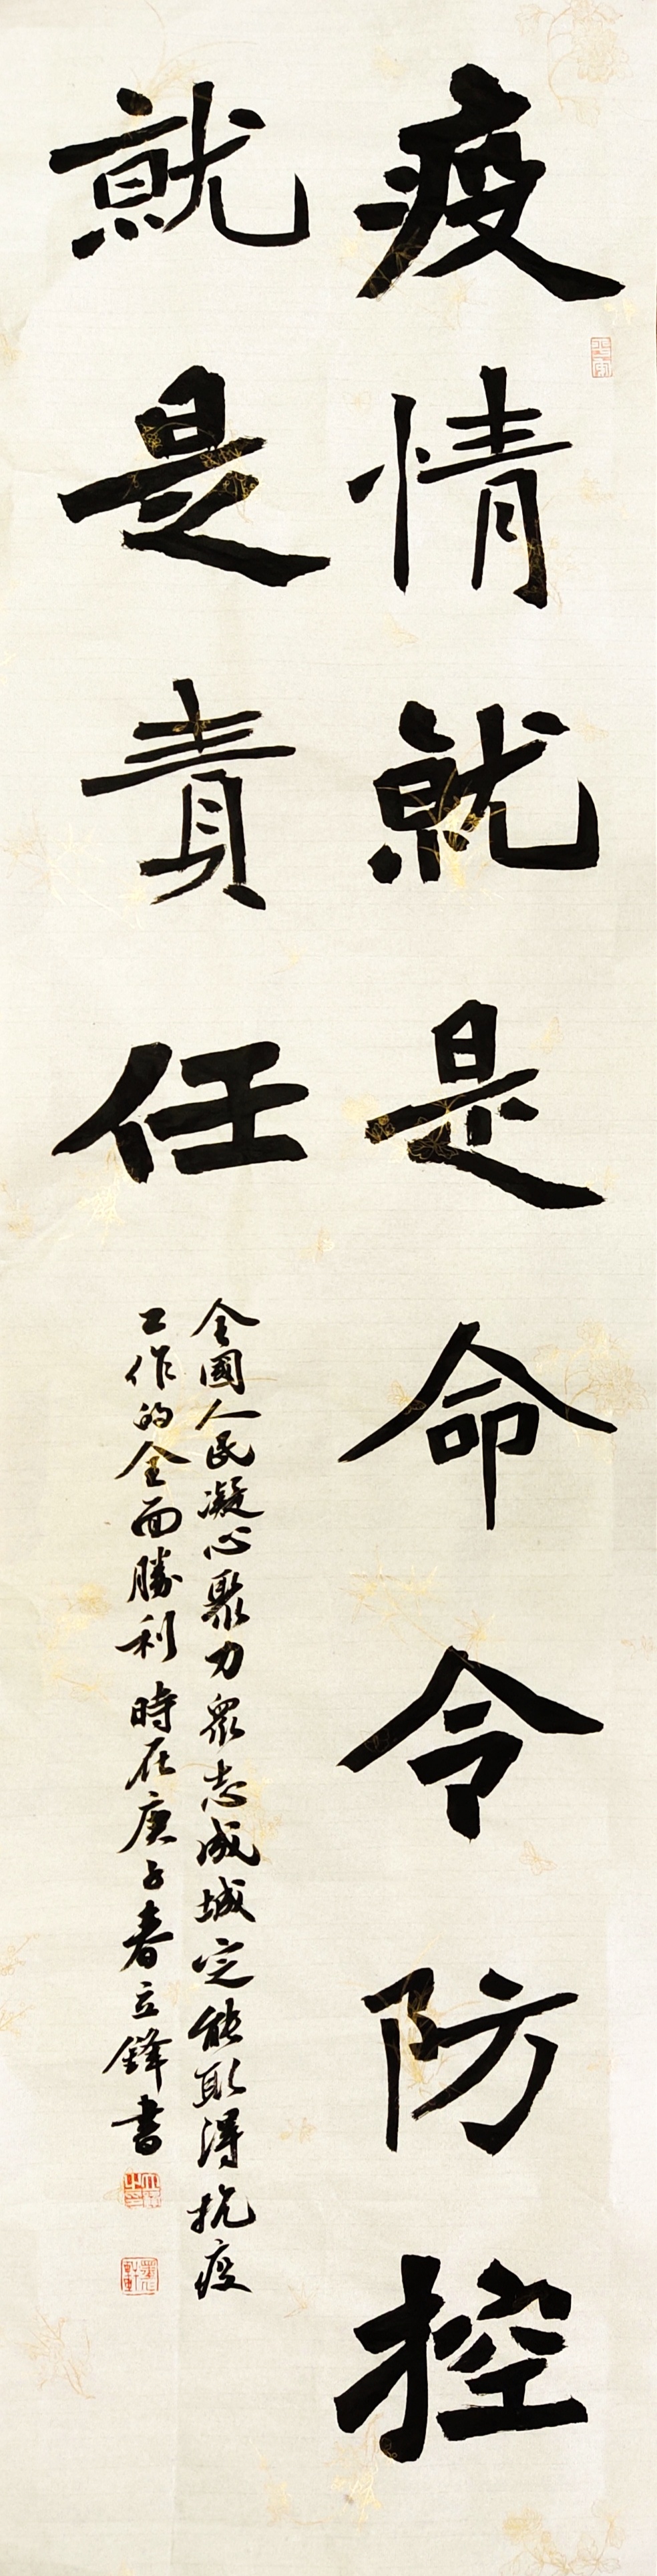 疫情就是命令防控
就是責任
全國人民凝心聚力眾志成城定能取得抗疫
工作的全面勝利時在庚子春立鋒書